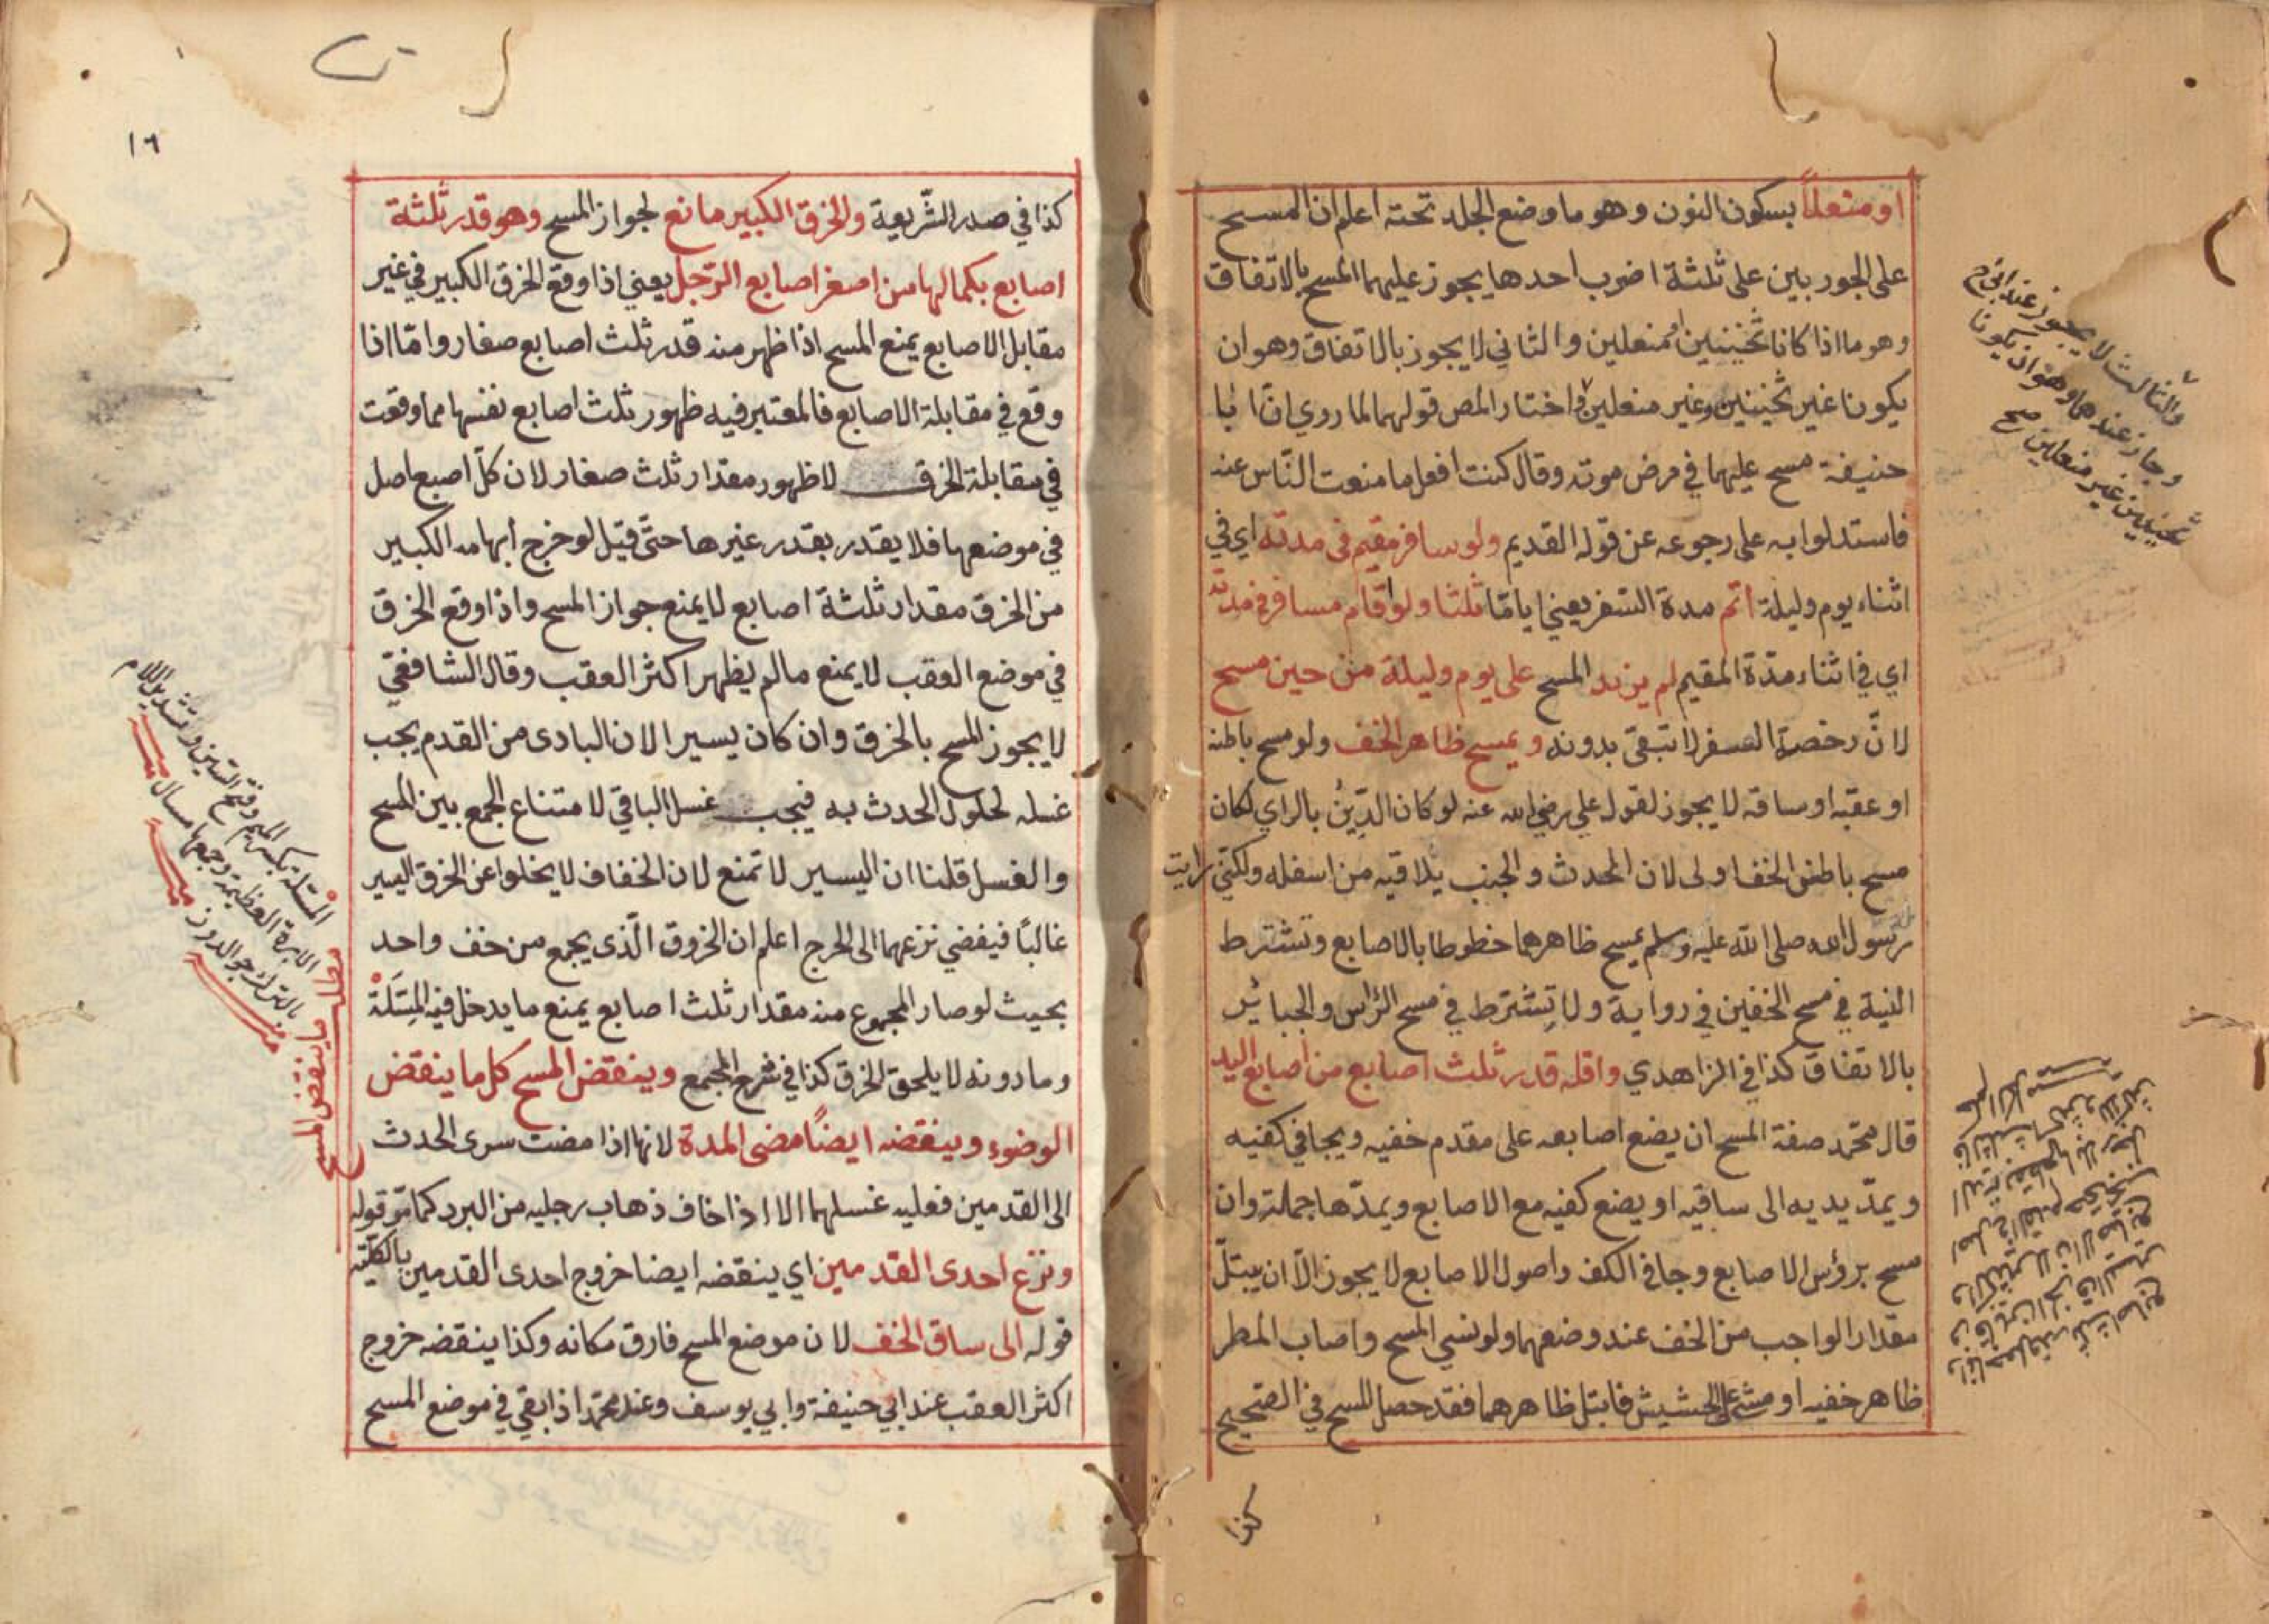 او منعلاً بسكون النون وهو ما وضع الجلد تحته اعلم ان المسح
على الجوربين على ثلثة اضرب احدها يجوز عليهما المسح بالاتفاق
وهو ما اذا كانا ثخينين منعلين والثاني لا يجوز بالاتفاق وهو ان
يكونا غير ثخينين وغير منعلين واختار المص قولهما لما روي ان ابا
حنيفة مسح عليهما في مرض موته وقال كنت افعل ما منعت النّاس عنه
فاستدلوا به على رجوعه عن قوله القديم ولو سافر مقيم في مدته اي في
اثناء يوم وليلة أتم مدة السّفر يعني اياما ثلثا ولو اقام مسافر في مدته
اي في اثناء مدّة المقيم لم يزد المسح على يوم وليلة من حين مسح
لانّ رخصة السفر لا تبقى بدونه ويمسح ظاهر الخف ولو مسح باطنه
او عقبه او ساقه لا يجوز لقول علي رضي الله عنه لو كان الدّينُ بالراي لكان
مسح باطن الخف اولى لان المحدث والجنب يلاقيه من اسفله ولكنّي رايت
رسول الله صلى الله عليه وسلم يمسح ظاهرهما خطوطا بالاصابع وتشترط
النية في مسح الخفين في رواية ولا تشترط في مسح الرّاس والجبائر
بالاتفاق كذا في الزاهدي واقله قدر ثلث اصابع من اصابع اليد
قال محمّد صفة المسح ان يضع اصابعه على مقدم خفيه ويجافي كفيه
ويمدّ يديه الى ساقيه او يضع كفيه مع الاصابع ويمدّها جملة وان
مسح برؤس الاصابع وجافي الكف واصول الاصابع لا يجوز الّا ان يبتلّ
مقدار الواجب من الخف عند وضعهما ولو نسي المسح واصاب المطر
ظاهر خفيه او مشى على الحشيش فابتل ظاهرهما فقد حصل المسح في الصحيح
كذا
والثالث لا يجوز عند ابي ح
وجاز عندهما وهو ان يكونا
ثخينين غير منعلين صح
١٦
كذا في صدر الشّريعة والخرق الكبير مانع لجواز المسح وهو قدر ثلثة
اصابع بكمالها من اصغر اصابع الرّجل يعني اذا وقع الخرق الكبير في غير
مقابل الاصابع يمنع المسح اذا ظهر منه قدر ثلث اصابع صغار وامّا اذا
وقع في مقابلة الاصابع فالمعتبر فيه ظهور ثلث اصابع نفسها مما وقعت
في مقابلة الخرق لا ظهور مقدار ثلث صغار لان كلّ اصبع اصل
في موضعها فلا يقدر بقدر غيرها حتّى قيل لو خرج ابهامه الكبير
من الخرق مقدار ثلثة اصابع لا يمنع جواز المسح واذا وقع الخرق
في موضع العقب لا يمنع ما لم يظهر اكثر العقب وقال الشافعيّ
لا يجوز المسح بالخرق وان كان يسيرا لان البادى من القدم يجب
غسله لحلول الحدث به فيجب غسل الباقي لامتناع الجمع بين المسح
والغسل قلنا ان اليسير لا تمنع لان الخفاف لا يخلوا عن الخرق اليسير
غالبًا فيفضي نزعهما الى الحرج اعلم ان الخروق الّذي يجمع من خف واحد
بحيث لو صار المجموع منه مقدار ثلث اصابع يمنع ما يدخل فيه المِسَلّة
وما دونه لا يلحق الخرق كذا في شرح المجمع وينقض المسح كل ما ينقض
الوضوء وينقضه ايضًا مضى المدة لانها اذا مضت سرى الحدث
الى القدمين فعليه غسلهما الا اذا خاف ذهاب رجليه من البرد كما مرّ قوله
ونزع احدى القدمين اي ينقضه ايضا خروج احدى القدمين بالكلّية
قوله الى ساق الخف لان موضع المسح فارق مكانه وكذا ينقضه خروج
اكثر العقب عند ابي حنيفة وابي يوسف وعند محمّد اذا بقي في موضع المسح
المسلة بكسر الميم وفتح السّين وتشديد اللام
الابرة العظيمة وجمعها مسال
مطلب ما ينقض المسح